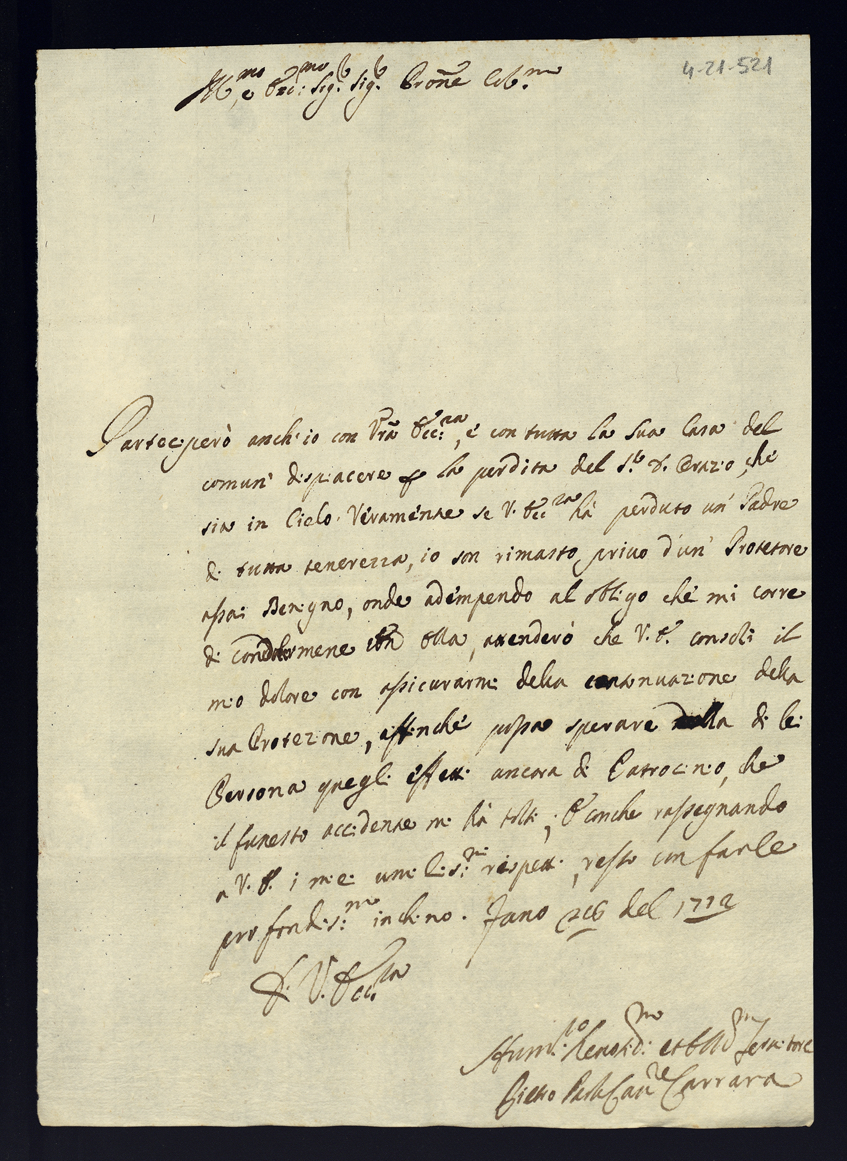 4-21-521
Ill.mo e Ecc:mo Sig.r Sig.r Prone Col.mo
Parteciperò anch'io con Vrã Ecc:za, e con tutta la sua Casa del
comun' dispiacere p la perdita del S.r D. Orazio, chè
sia in Cielo. Veramente se V. Ecc.za hà perduto un' Padre
di tutta tenerezza, io son rimasto privo d'un' Protetore
assai Benigno, onde adempendo al obligo chè mi corre
di condolermene con ella, attenderò che V. E. consoli il
mio dolore con assicurarmi della continuazione della
sua Protezione, affinchè possa sperare dalla di lei
Persona quegli effetti ancora di Patrocinio, che
il funesto accidente mi hà tolti; E anche rassegnando
a V. E. i miei umilis:mi rispetti, resto con farle
profondis:mo inchino. Fano 26 del 1712
D. V. Ecc.za
Hum:mo Devotis:mo et Obl:mo Servitore
Pietro Carrara